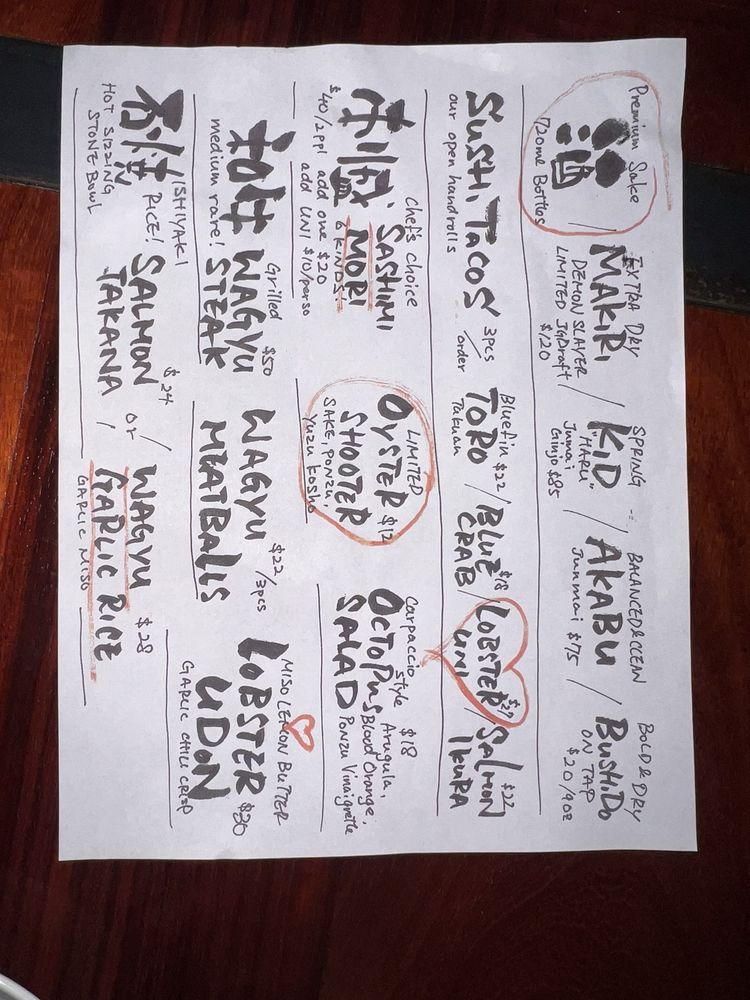 Premium Sake
酒
720ml Bottles
EXTRA DRY
MAKIRI
DEMON SLAYER
LIMITED JGDraft
$120
SPRING
KID
"HARU"
Junmai
Ginjo $85
BALANCED & CLEAN
AKABU
Junmai $75
BOLD & DRY
BUSHIDO
ON TAP
$20/9oz
SUSHI TACOS
our open handrolls
3pcs
/order
Bluefin $22
TORO
Takuan
$18
BLUE
CRAB
$29
LOBSTER
UNI
$22
SALMON
IKURA
刺盛
chef's choice
SASHIMI
MORI
6 KINDS!
$40/2ppl add one $20
add UNI $10/perso
LIMITED
OYSTER $12
SHOOTER
SAKE, PONZU,
YUZU KOSHO
Carpaccio style $18
OCTOPUS
SALAD
Arugula,
Blood Orange,
Ponzu Vinaigrette
和牛
medium rare!
Grilled $50
WAGYU
STEAK
$22/3pcs
WAGYU
MEATBALLS
MISO LEMON BUTTER
LOBSTER $30
UDON
GARLIC CHILI CRISP
石焼
"ISHIYAKI
RICE!
HOT SIZZING
STONE BOWL
IN
$24
SALMON
TAKANA
or
WAGYU $28
GARLIC RICE
GARLIC MISO